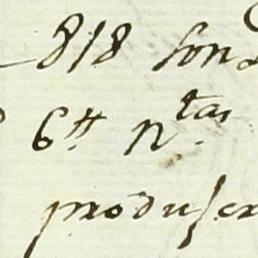 818 son
6tt ntas
produser